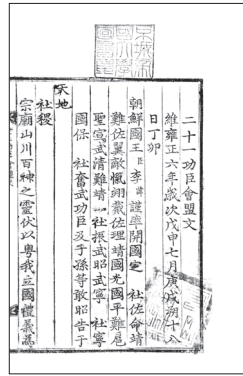 二十一功臣會盟文
維雍正六年歲次戊申七月庚戌朔十八
日丁卯
朝鮮國王臣李諱謹率開國定 社佐命靖
難佐翼敵愾翊戴佐理靖國光國平難扈
聖宣武清難靖 社振武昭武寧 社寧
國保 社奮武功臣及子孫等敢昭告于
天地
社稷
宗廟山川百神之靈伏以粤我立國禮義爲